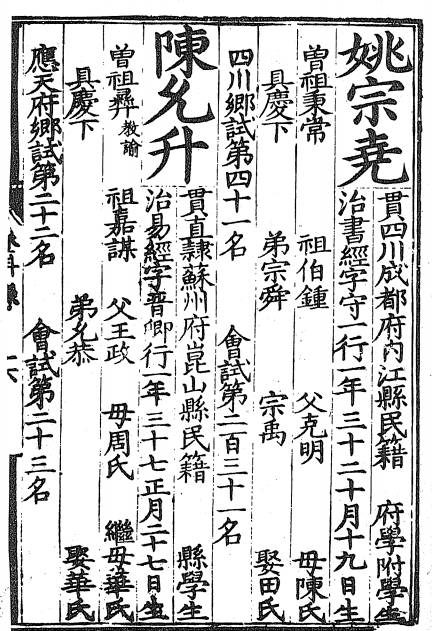 姚宗堯
貫四川成都府內江縣民籍 府學附學生
治書經字守一行一年三十二十月十九日生
曾祖秉常 祖伯鍾 父克明 母陳氏
具慶下 弟宗舜 宗禹 娶田氏
四川鄉試第四十一名 會試第二百三十一名
陳允升
貫直隷蘇州府崑山縣民籍 縣學生
治易經字晉卿行一年三十七正月二十七日生
曾祖彞教諭 祖嘉謀 父王政 母周氏 繼母華氏
具慶下 弟允恭 娶華氏
應天府鄉試第二十二名 會試第二十三名